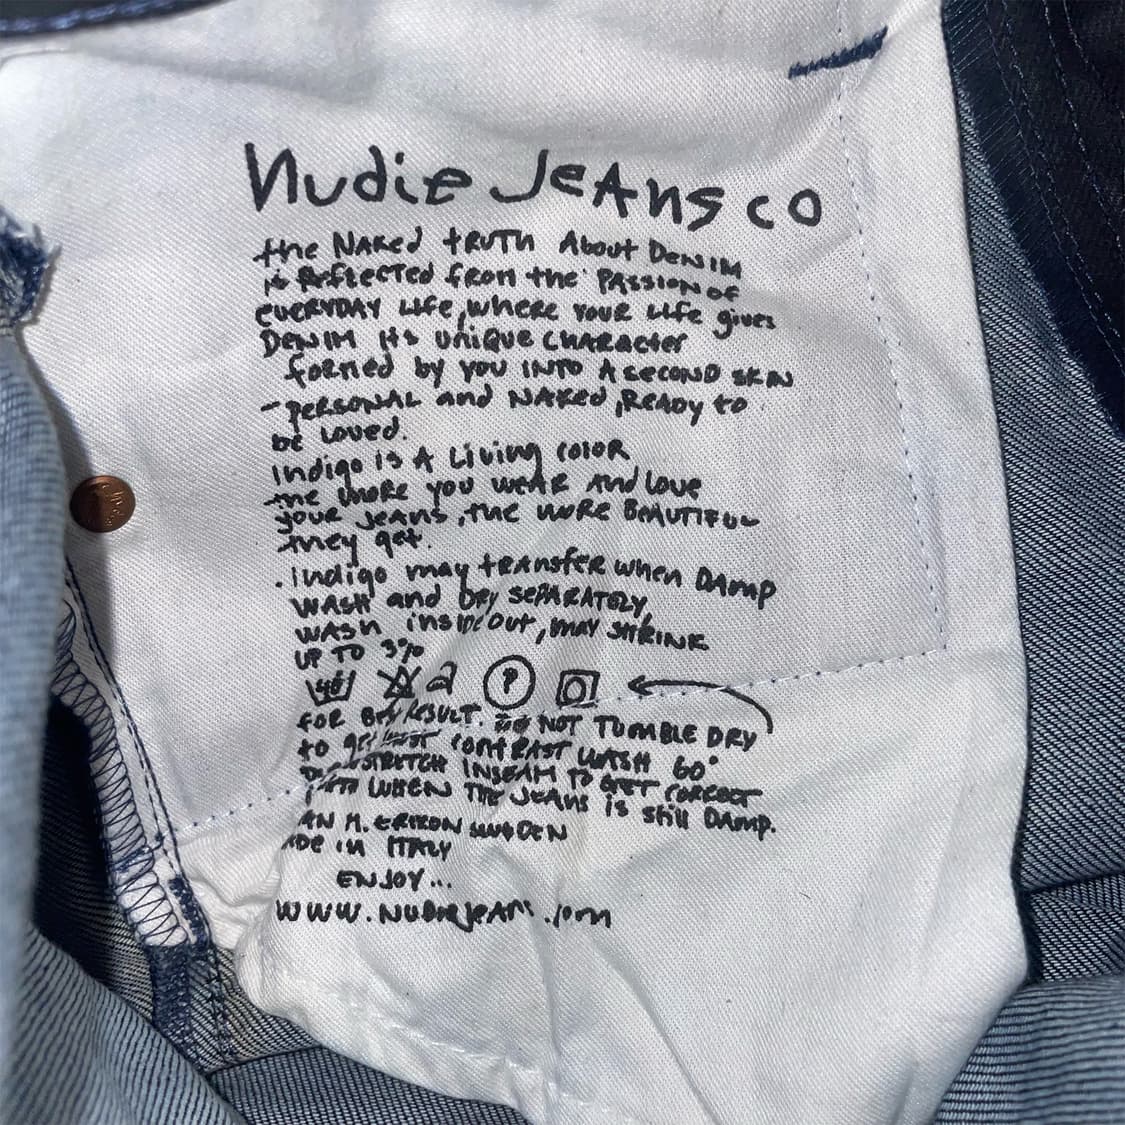 nudie Jeans co
the Naked truth About Denim
is Reflected from the Passion of
everyday life, where your life gives
Denim its unique character
formed by you into A second skin
- personal and Naked, Ready to
be loved.
Indigo is A Living color
the more you wear and love
your jeans, the more Beautiful
they get.
. indigo may transfer when Damp
wash and Dry separately,
wash inside out, may shrink
up to 3%
for best result. Do not tumble dry
to get contrast wash 60°
stretch inseam to get correct
when the jeans is still Damp.
in Italy
Enjoy...
www.nudiejeans.com